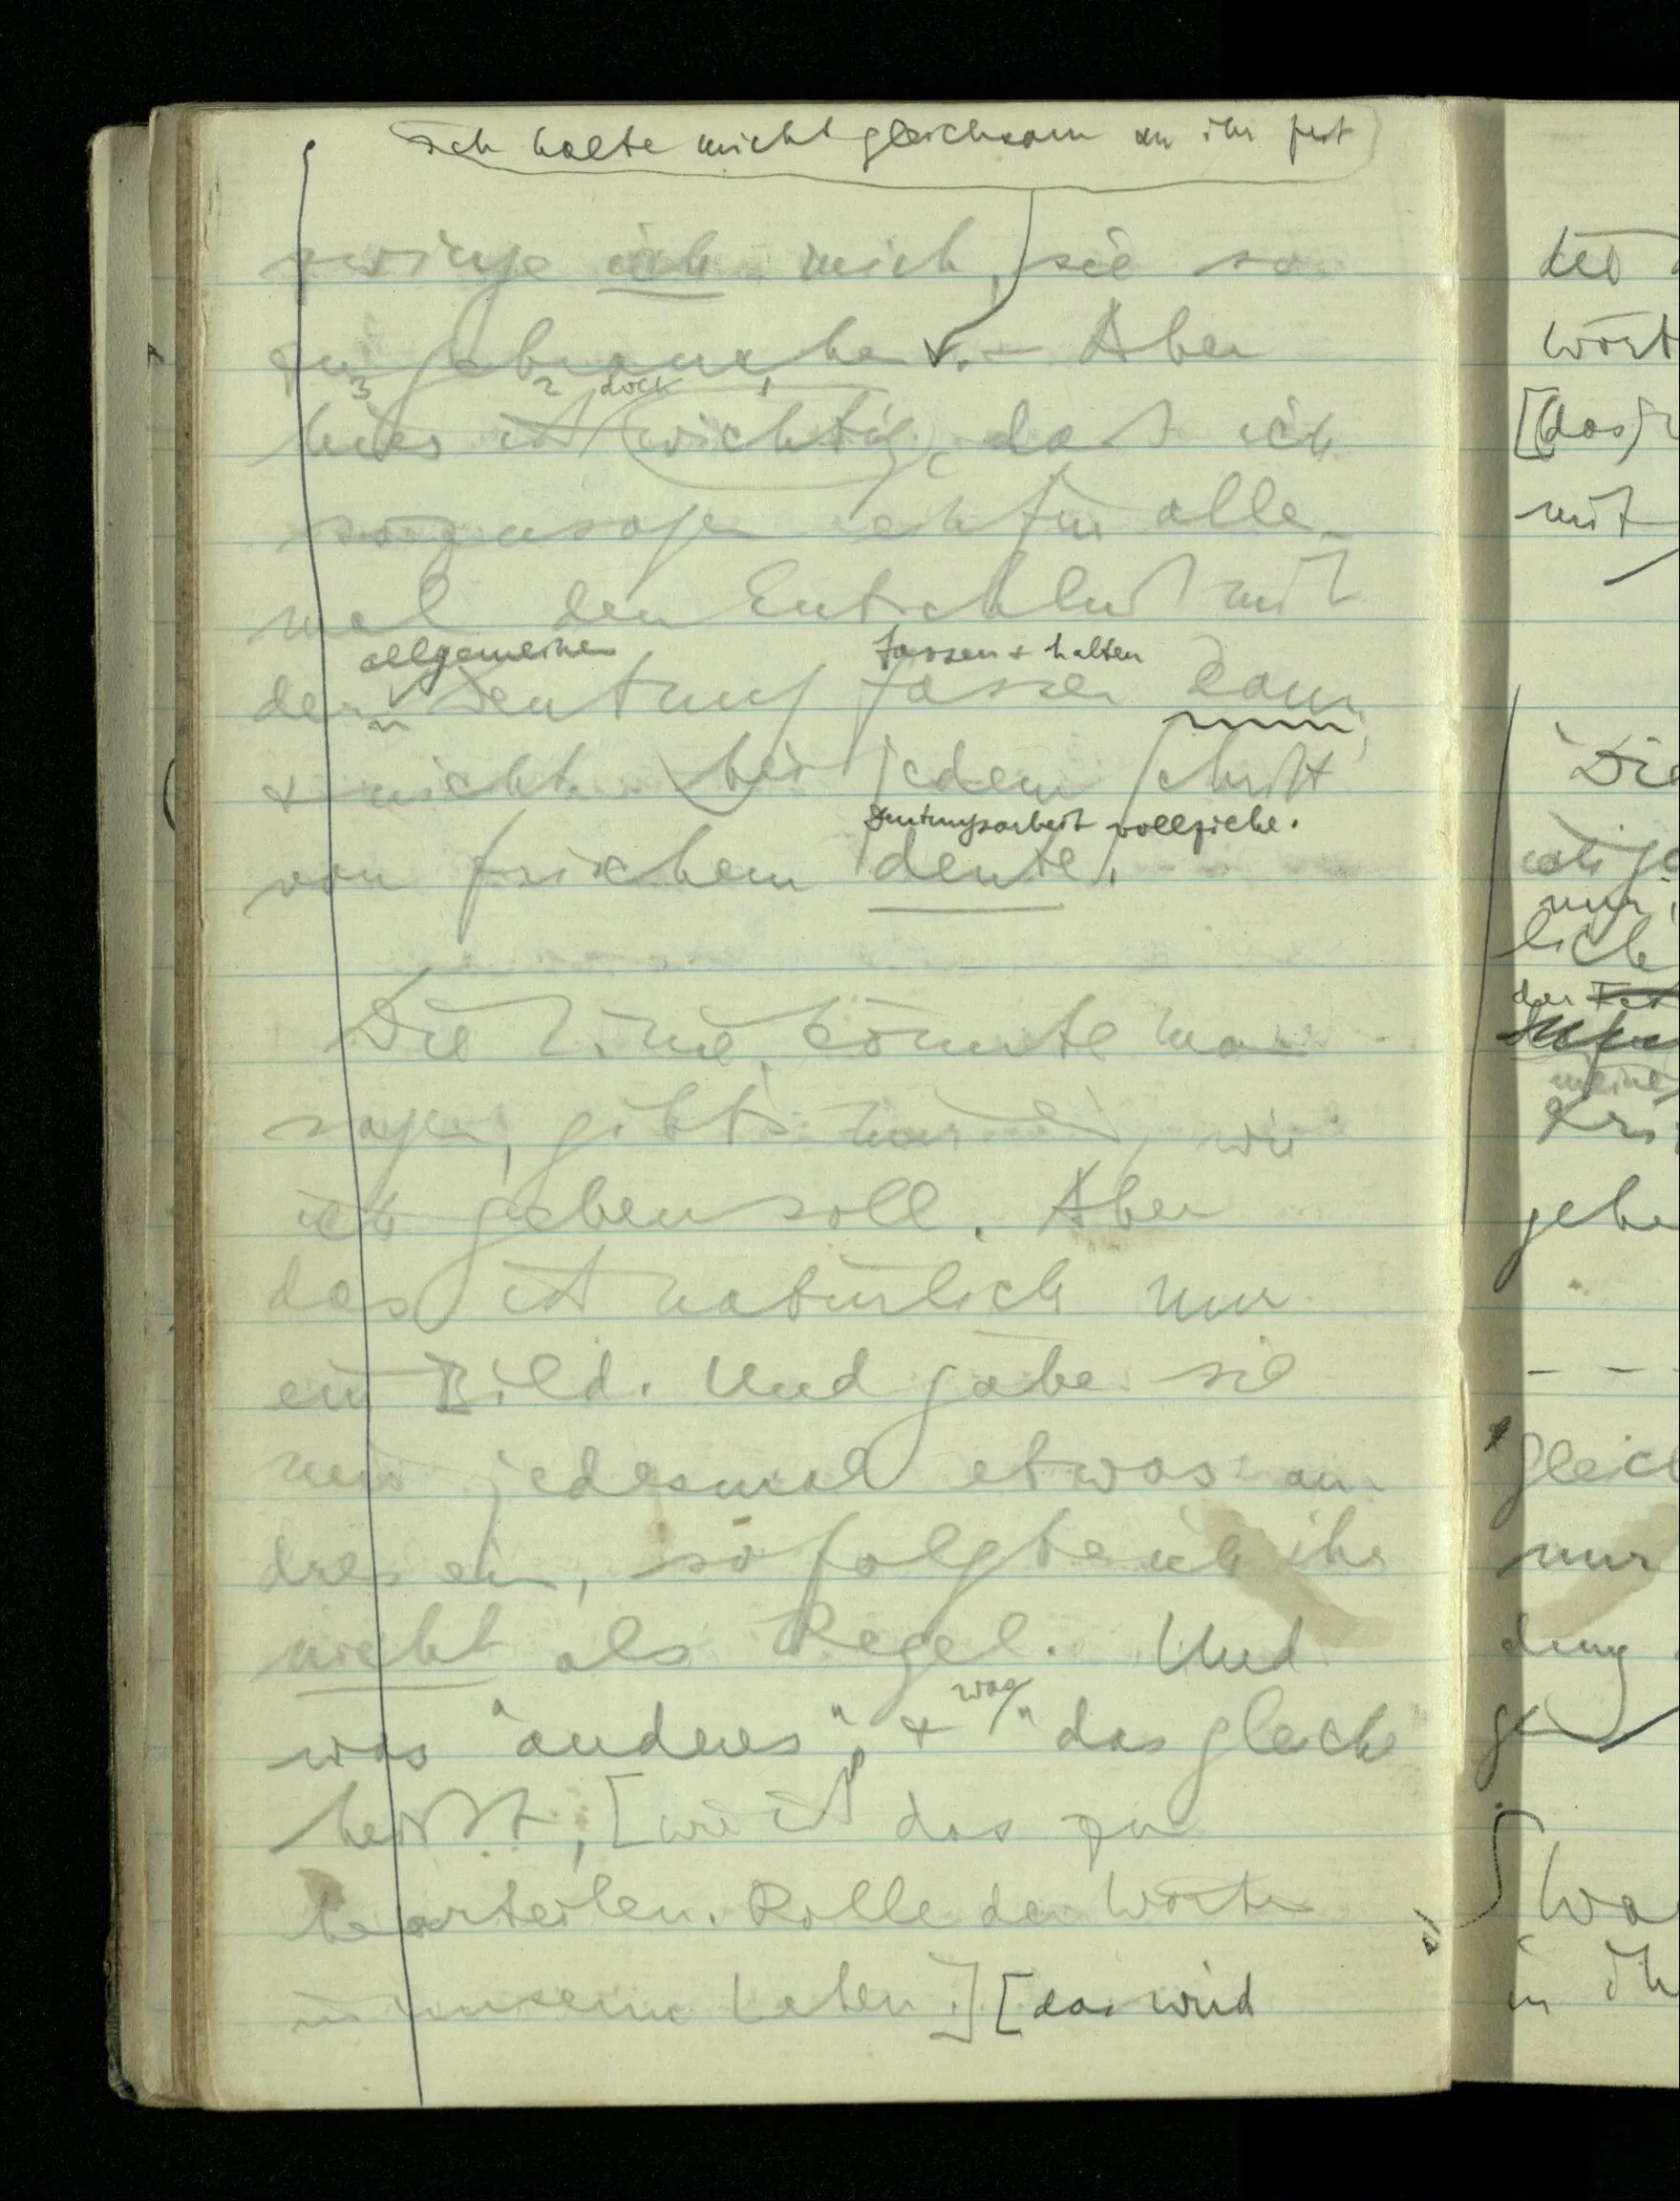 ich halte mich gleichsam an ihr fest
zwinge ich mich, sie so
zu gebrauchen. – Aber
3 2 doch 1
hier ist wichtig, daß ich
sozusagen ein für alle
mal den Entschluß mit
allgemeinen fassen + halten
der Deutung fasse
n
& nicht bei jedem Schritt
Deutungsarbeit vollziehe.
von frischem deute.
Die Linie, könnte man
sagen, gibt's mir ein, wie
ich gehen soll. Aber
das ist natürlich nur
ein Bild. Und gäbe sie
mir jedesmal etwas an-
dres ein, so folgte ich ihr
nicht als Regel. Und
was
was "anderes", & "das gleiche"
heißt, [wie ist das zu
beurteilen. Rolle der Worte
in unserm Leben.] [das wird
des
wort
[das]
mit
Die
nur
lich
der
meine
gehe
– –
gleich
nur
dung
in